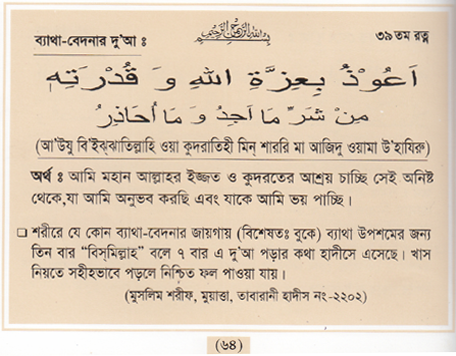 ব্যাথা-বেদনার দু'আ ঃ
بسم الله الرحمن الرحيم
৩৯তম রত্ন
اَعُوْذُ بِعِزَّةِ اللهِ وَ قُدْرَتِهٖ
مِنْ شَرِّ مَا اَجِدُ وَ مَا اُحَاذِرُ
(আ'উযু বি'ইঝ্ঝাতিল্লাহি ওয়া কুদরাতিহী মিন্ শাররি মা আজিদু ওয়ামা উ'হাযিরু)
অর্থ ঃ আমি মহান আল্লাহর ইজ্জত ও কুদরতের আশ্রয় চাচ্ছি সেই অনিষ্ট
থেকে,যা আমি অনুভব করছি এবং যাকে আমি ভয় পাচ্ছি।
❑ শরীরে যে কোন ব্যাথা-বেদনার জায়গায় (বিশেষতঃ বুকে) ব্যাথা উপশমের জন্য
তিন বার “বিস্মিল্লাহ” বলে ৭ বার এ দু'আ পড়ার কথা হাদীসে এসেছে। খাস
নিয়তে সহীহভাবে পড়লে নিশ্চিত ফল পাওয়া যায়।
(মুসলিম শরীফ, মুয়াত্তা, তাবারানী হাদীস নং-২২০২)
(৬৪)